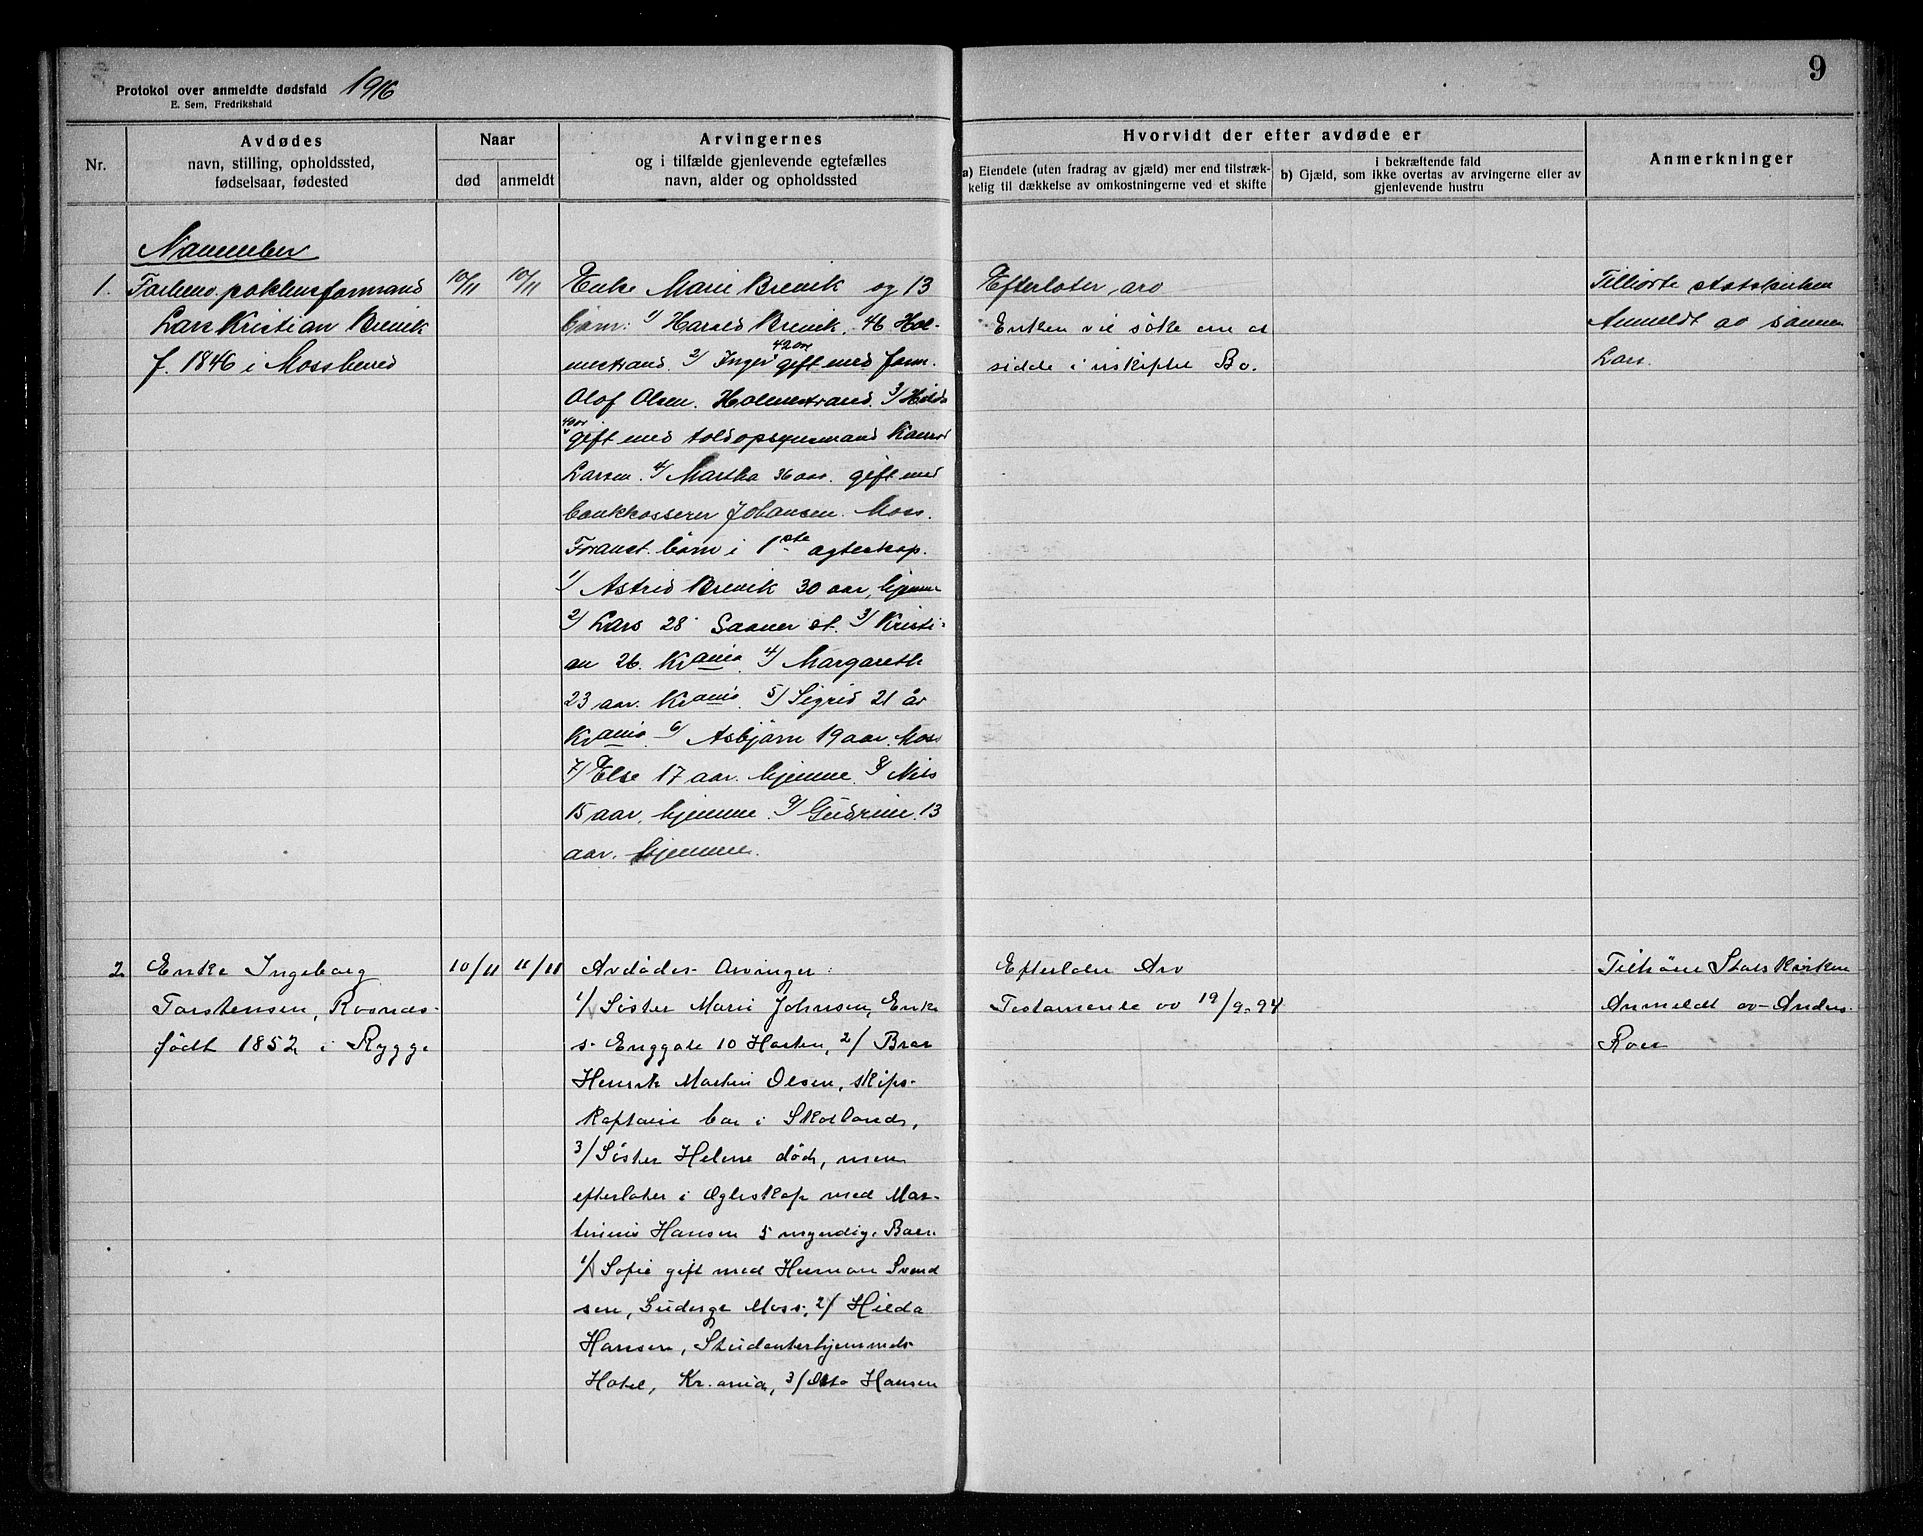 9
Protokol over anmeldte dødsfald 1916
E. Sem, Fredrikshald
Nr.
Avdødes
navn, stilling, opholdssted,
fødselsaar, fødested
Naar
død
anmeldt
Arvingernes
og i tilfælde gjenlevende egtefælles
navn, alder og opholdssted
Hvorvidt der efter avdøde er
a) Eiendele (uten fradrag av gjæld) mer end tilstræk-
kelig til dækkelse av omkostningerne ved et skifte
i bekræftende fald
b) Gjæld, som ikke overtas av arvingerne eller av
gjenlevende hustru
Anmerkninger
November
1.
Lars Kristian Brevik
f. 1846 i Mossherred
10/11
10/11
Enke Marie Brevik og 13
børn: 1/ Harald Brevik, 46 Hol-
mestrand. 2/ Inger 42 aar gift med form.
Olof Olsen. Holmestrand. 3/ Hilda
40 aar gift med toldopsynsmand
Larsen. 4/ Martha 36 aar. gift med
bankkasserer Johansen. Moss.
Foranst. børn i 1ste egteskap.
1/ Astrid Brevik 30 aar, hjemme
2/ Lars 28 Saaner st. 3/ Kristi-
an 26. Krania 4/ Margareth
23 aar. Krania. 5/ Sigrid 21 år
Krania. 6/ Asbjørn 19 aar. Moss
7/ Else 17 aar. hjemme. 8/ Nils
15 aar, hjemme. 9/ Gudrun. 13
aar. hjemme.
Efterlater arv
Enken vil søke om at
sidde i uskiftet Bo.
Tilhørte statskirken
Anmeldt av sønnen
Lars.
2
Enke Ingeborg
Torstensen, Rosnes-
født 1852 i Rygge
10/11
11/11
Avdødes Arvinger:
1/ Søster Marie Johnsen, Enke
s. Enggate 10 Horten, 2/ Bror
Henrik Martin Olsen, skips-
kaptain bor i Skotland,
3/ Søster Helene død, men
efterlater i Egteskap med Mar-
tinius Hansen 5 myndige Børn
1/ Sofie gift med Herman Svend
sen, Moss, 2/ Hilda
Hansen, Studenterhjemmets
Hotel, Kr.ania, 3/ Otto Hansen
Efterlater Arv
Testamente av 19/9-94
Tilhørte Statskirken
Anmeldt av Anders
Roer